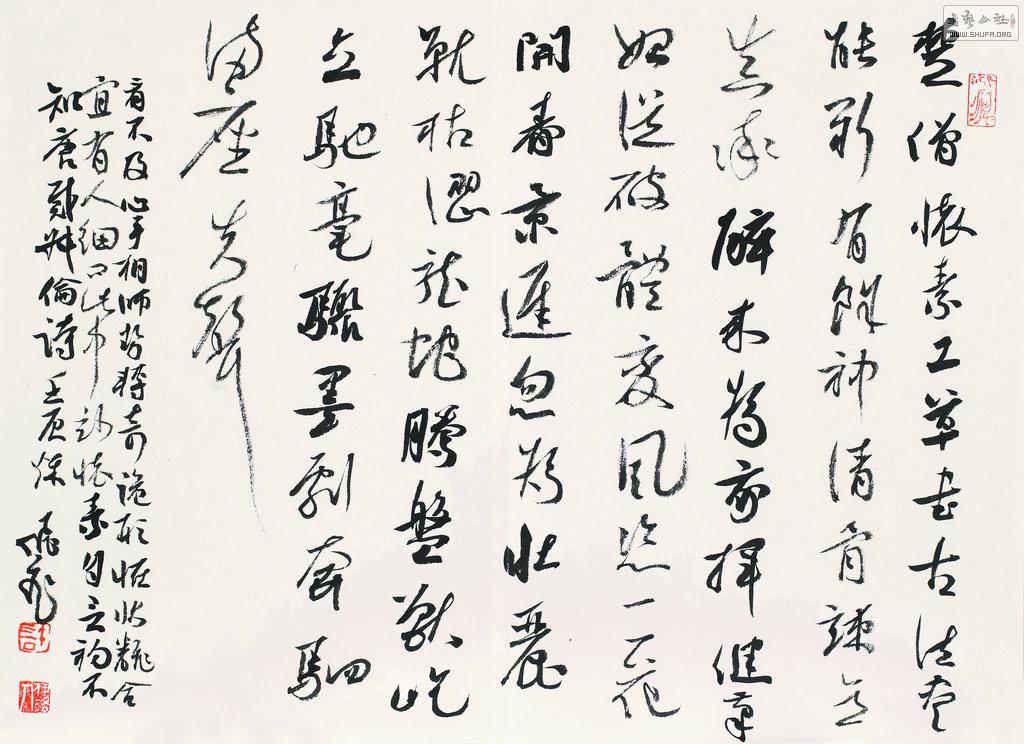 楚僧懷素工草書古法盡
能新有餘神清骨竦意
真率醉來為我揮健筆
始從破體變風姿一一花
開春景遲忽為壯麗
就枯澀龍蛇騰盤獸屹
立馳毫驟墨劇奔駟
滿座失聲
看不及心手相師勢轉奇詭形怪狀翻合
宜有人細問此中妙懷素自言初不
知唐戴叔倫詩
WWW.SHUFA.ORG